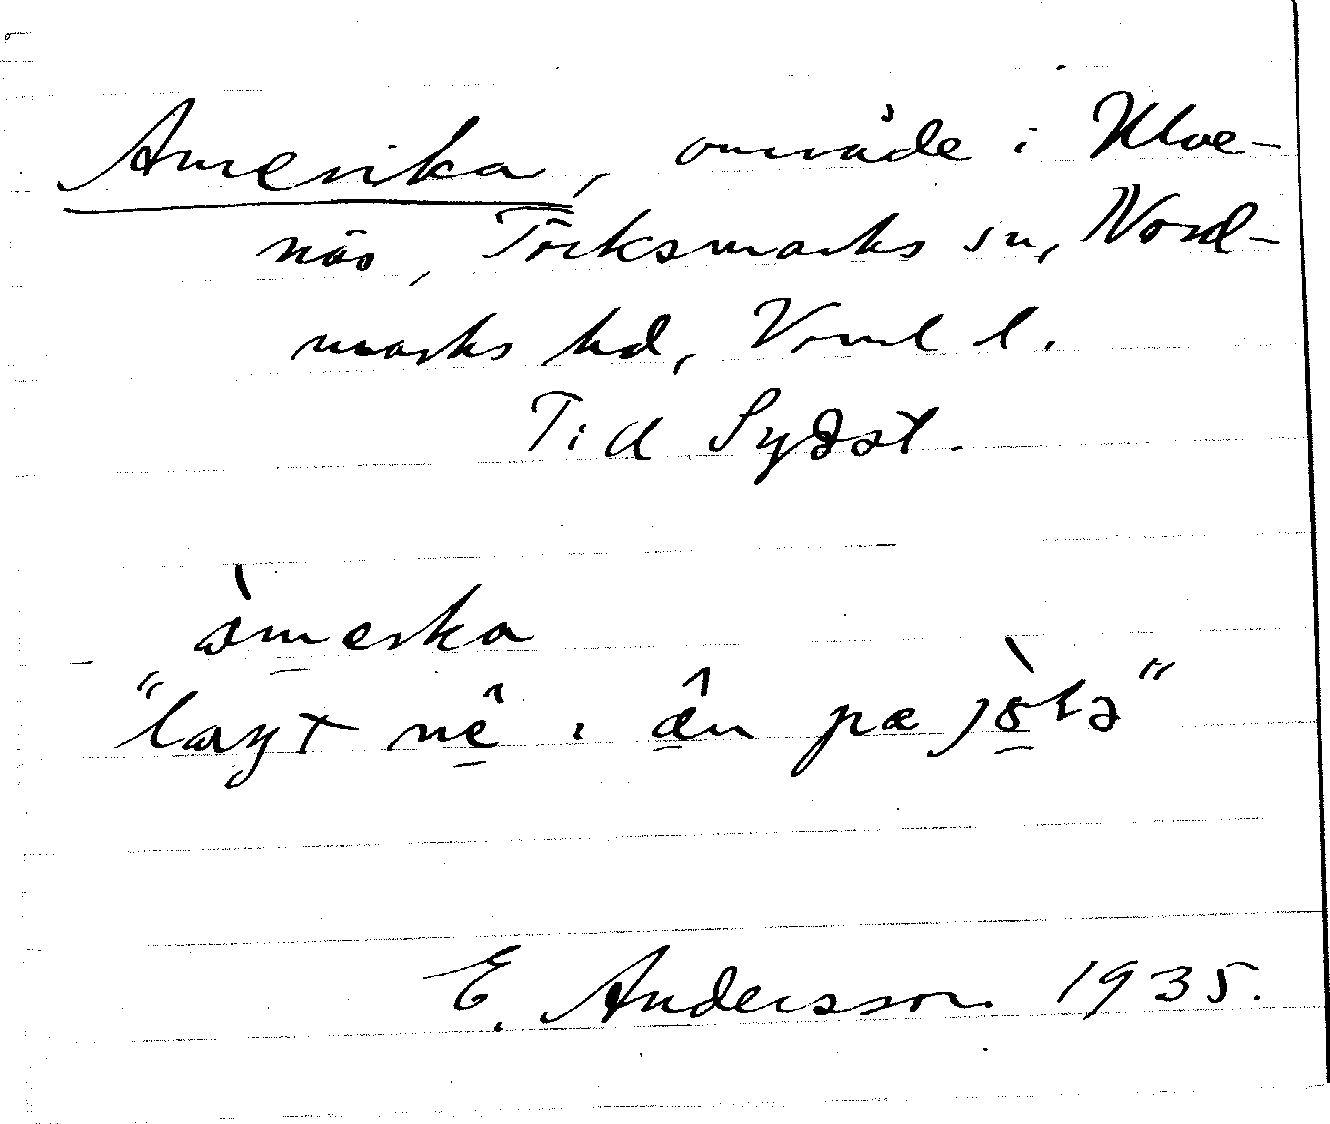 Amerika, område i Kloe-
näs, Töcksmarks sn, Nord-
marks hd, Vrml l.
T.d Sydöst.
àmerka
"laqt nê i æ̂n pæ jòlə"
E. Andersson 1935.